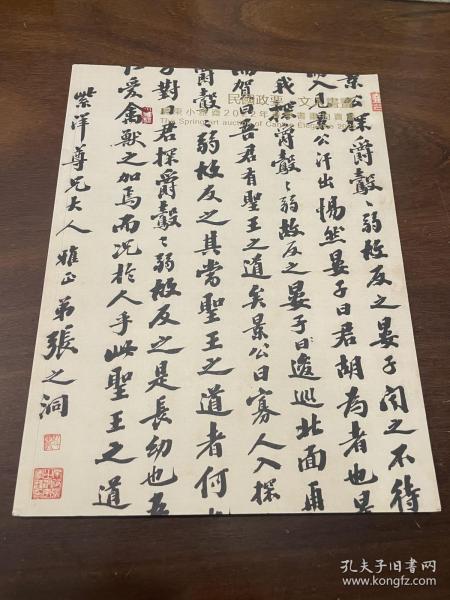 民國政要 文人書畫
景公探爵鷇〻弱故反之晏子聞之不待
入見景公汗出惕然晏子曰君胡為者也景
我探爵鷇〻弱故反之晏子曰逡巡北面再
而賀曰吾君有聖王之道矣景公曰寡人入探
爵鷇〻弱故反之其當聖王之道者何
子對曰君探爵鷇〻弱故反之是長幼也吾
仁愛禽獸之加焉而況於人乎此聖王之道
紫洋尊兄大人雅正弟張之洞
孔夫子旧书网
www.kongfz.com